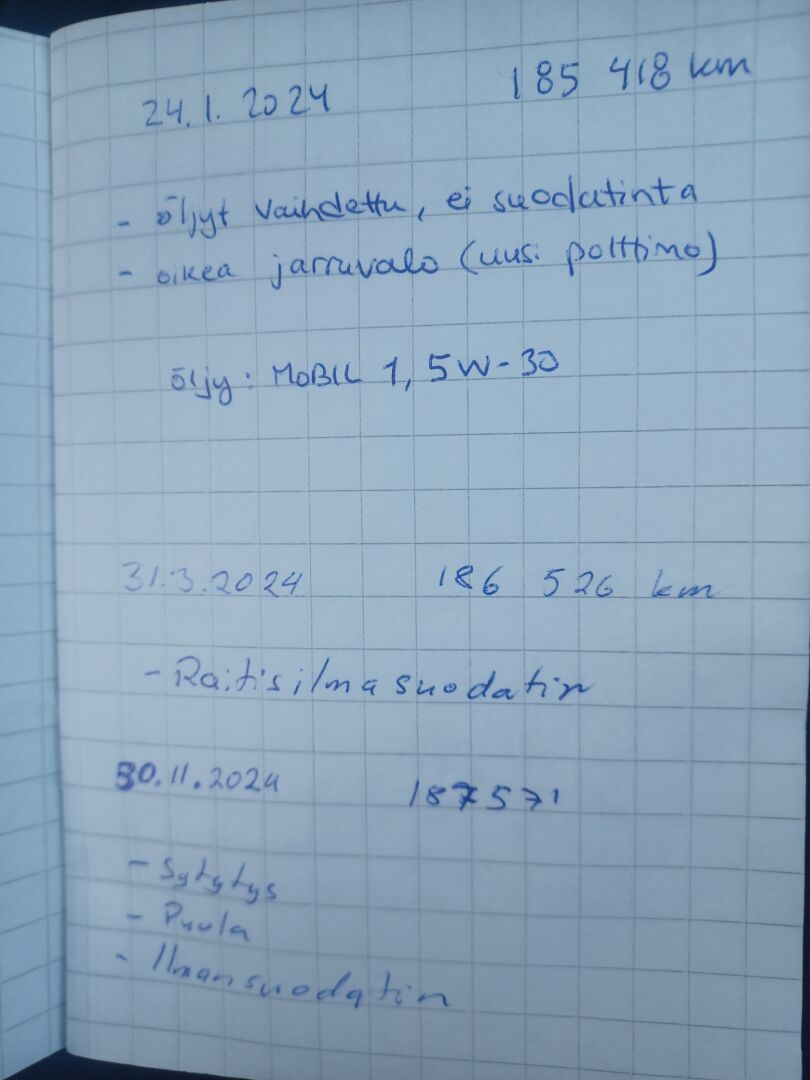 24.1.2024 185 418 km
- öljyt vaihdettu, ei suodatinta
- oikea jarruvalo (uusi polttimo)
öljy: MOBIL 1, 5W-30
31.3.2024 186 526 km
- Raitisilmasuodatin
30.11.2024 187571
- Sytytys
- Puola
- Ilmansuodatin